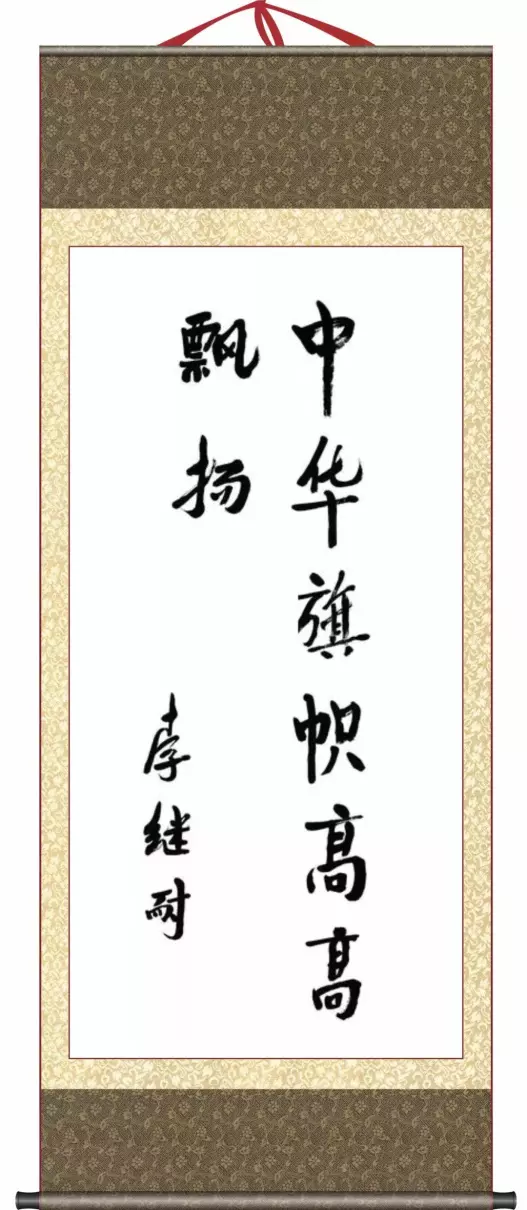 中华旗帜高高
飘扬
李继耐